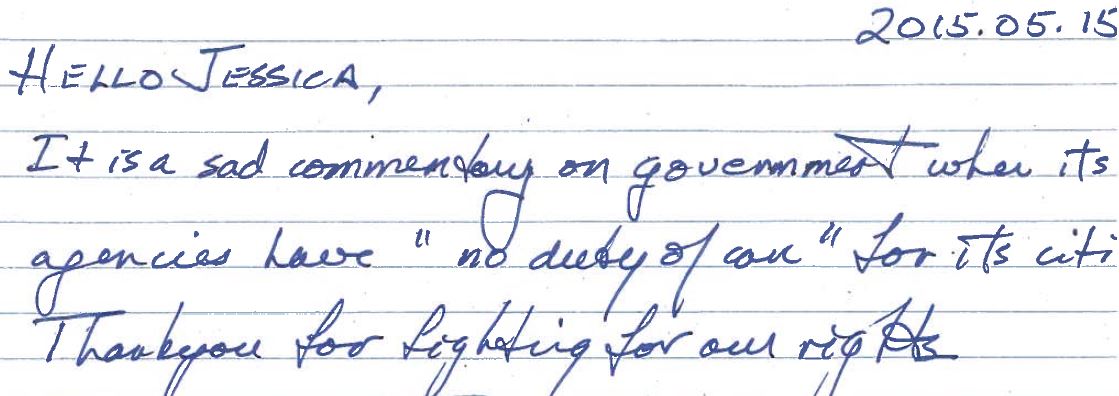 2015.05.15
HELLO JESSICA,
It is a sad commentary on government when its
agencies have "no duty of care" for its citi
Thankyou for fighting for our rights